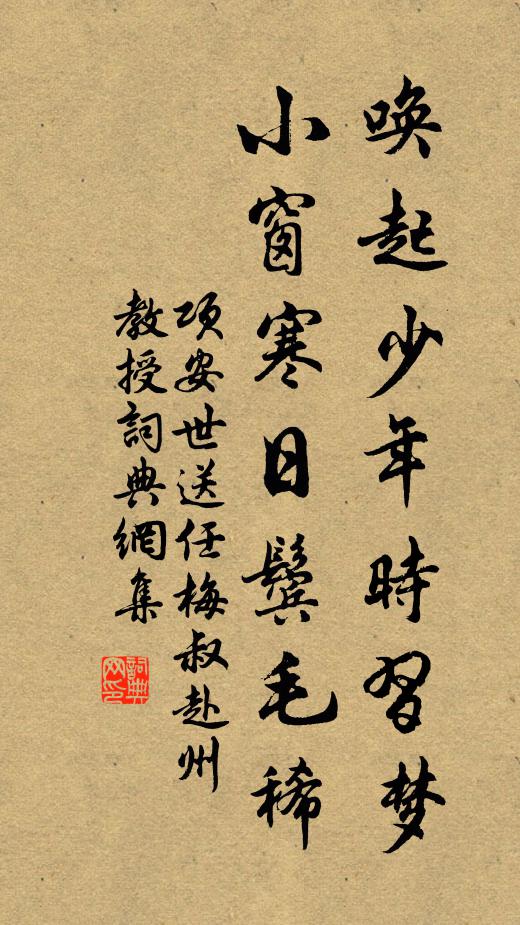 唤起少年時習梦
小窗寒日鬓毛稀
项安世送任梅叔赴州
教授詞典網集
詞典網印